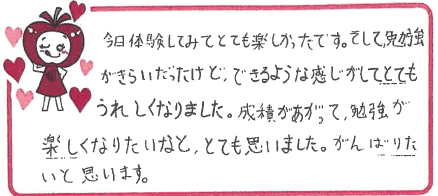 今日体験してみてとても楽しかったです。そして、勉強
がきらいだったけど、できるような感じがしてとても
うれしくなりました。成績があがって、勉強が
楽しくなりたいなと、とても思いました。がんばりた
いと思います。